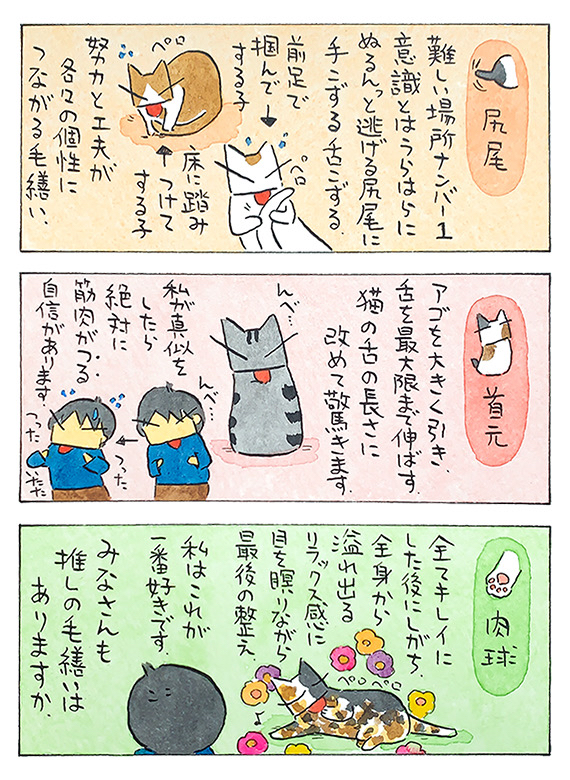 尻尾
難しい場所ナンバー1
意識とはうらはらに
ぬるんっと逃げる尻尾に
手こずる舌こずる.
前足で
掴んで
する子
ペロ
ペロ
床に踏み
つけて
する子
努力と工夫が
各々の個性に
つながる毛繕い.
首元
アゴを大きく引き、
舌を最大限まで伸ばす.
猫の舌の長さに
改めて驚きます.
んべ…
私が真似を
したら
絶対に
筋肉がつる
自信があります.
んべ…
つった
つった
いたた
肉球
全てキレイに
した後にしがち.
全身から
溢れ出る
リラックス感に
目を瞑りながら
最後の整え.
ペロペロ
♪
私はこれが
一番好きです.
みなさんも
推しの毛繕いは
ありますか.